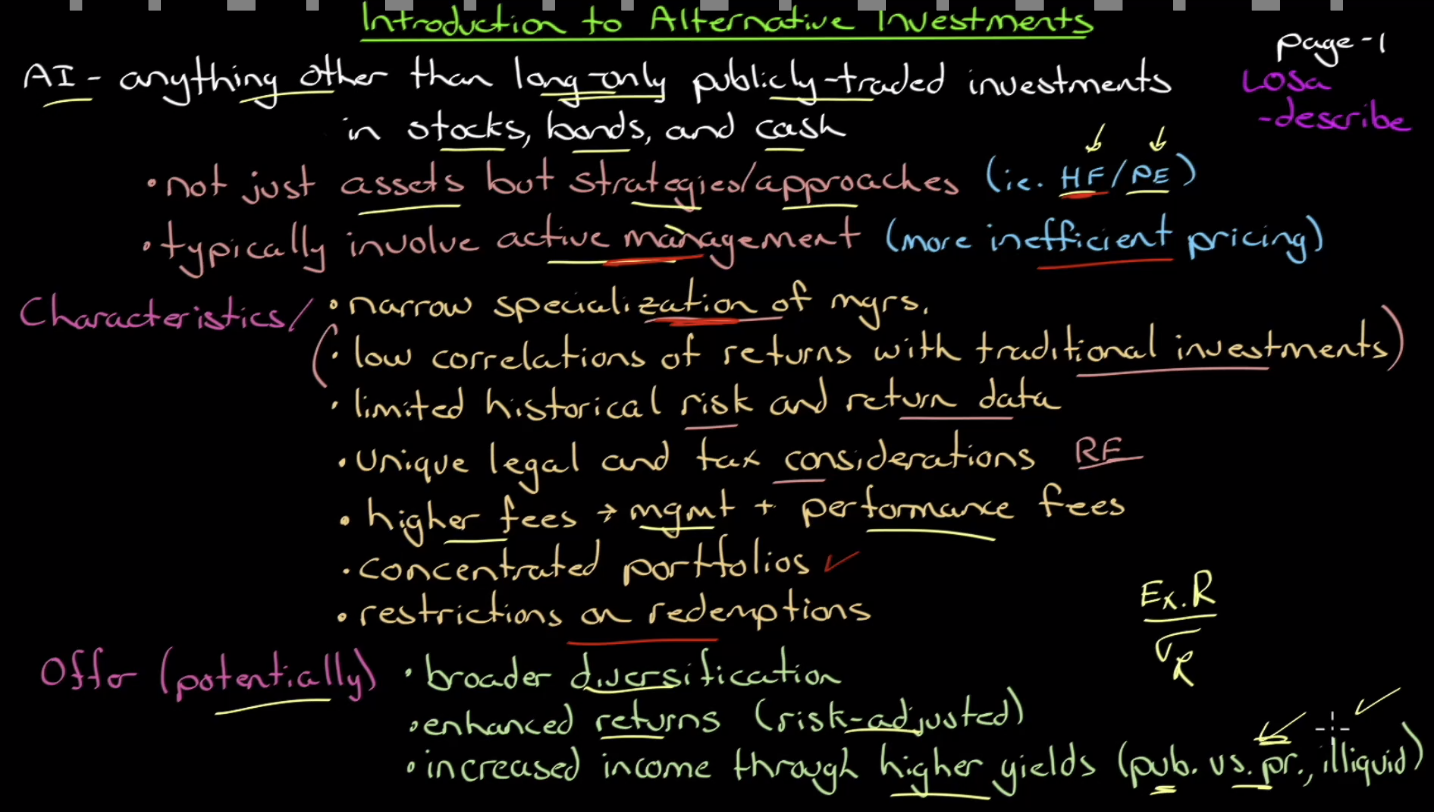 Introduction to Alternative Investments
page-1
AI - anything other than long-only publicly-traded investments
LOSa
in stocks, bonds, and cash
-describe
• not just assets but strategies/approaches (ie. HF/PE)
• typically involve active management (more inefficient pricing)
Characteristics/ • narrow specialization of mgrs.
• low correlations of returns with traditional investments)
• limited historical risk and return data
• unique legal and tax considerations RE
• higher fees → mgmt + performance fees
• concentrated portfolios ✓
• restrictions on redemptions
Ex.R
σR
Offer (potentially) • broader diversification
• enhanced returns (risk-adjusted)
• increased income through higher yields (pub. vs. pr., illiquid)